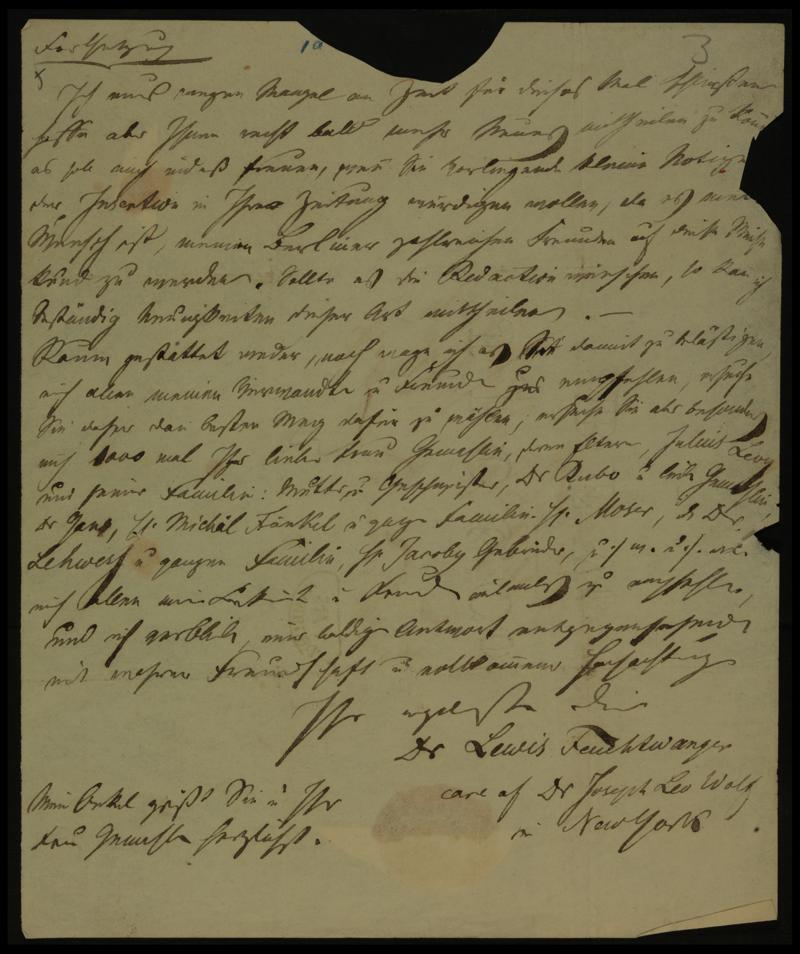 Fortsetzung 10 3
Ich muß wegen Mangel an Zeit für dieses Mal schließen
hoffe aber Ihnen recht bald mehr Neues mittheilen zu könn
es soll mich indeß freuen, wenn Sie vorliegende kleine Notizen
der Insertion in Ihrer Zeitung würdigen wollen, da es mein
Wunsch ist, meinen Berliner zahlreichen Freunden auf diese Weise
kund zu werden. Sollte es die Redaction wünschen, so kan ich
beständig Neuigkeiten dieser Art mittheilen. —
Kaum gestattet weder, noch wage ich es Sie damit zu belästigen,
mich allen meinen Verwandten u Freunde zu empfehlen, ersuche
Sie daher den besten Weg dafür zu wählen, ersuche Sie aber besonders
mich 1000 mal Ihrer lieben Frau Gemahlin, deren Eltern, Julius Levy
und seiner Familie: Mutter u Geschwister, Dr Rubo u liebe Gemahlin,
Dr Gans, Hr. Michäl Fränkel u ganze Familie Hr. Moser, d. Dr.
Lehwess u ganzen Familie, Hr Jacoby Gebrüder, u. s. w. u. s. w.
mich allen u Freund zu empfehlen,
und ich verbleibe, einer baldigen Antwort entgegensehend
mit wahrer Freundschaft u vollkommener Hochachtung
Ihr
Dr Lewis Feuchtwanger
care of Dr Joseph Leo Wolf
in NewYork
Mein Onkel grüßt Sie u Ihre
Frau Gemahlin herzlichst.